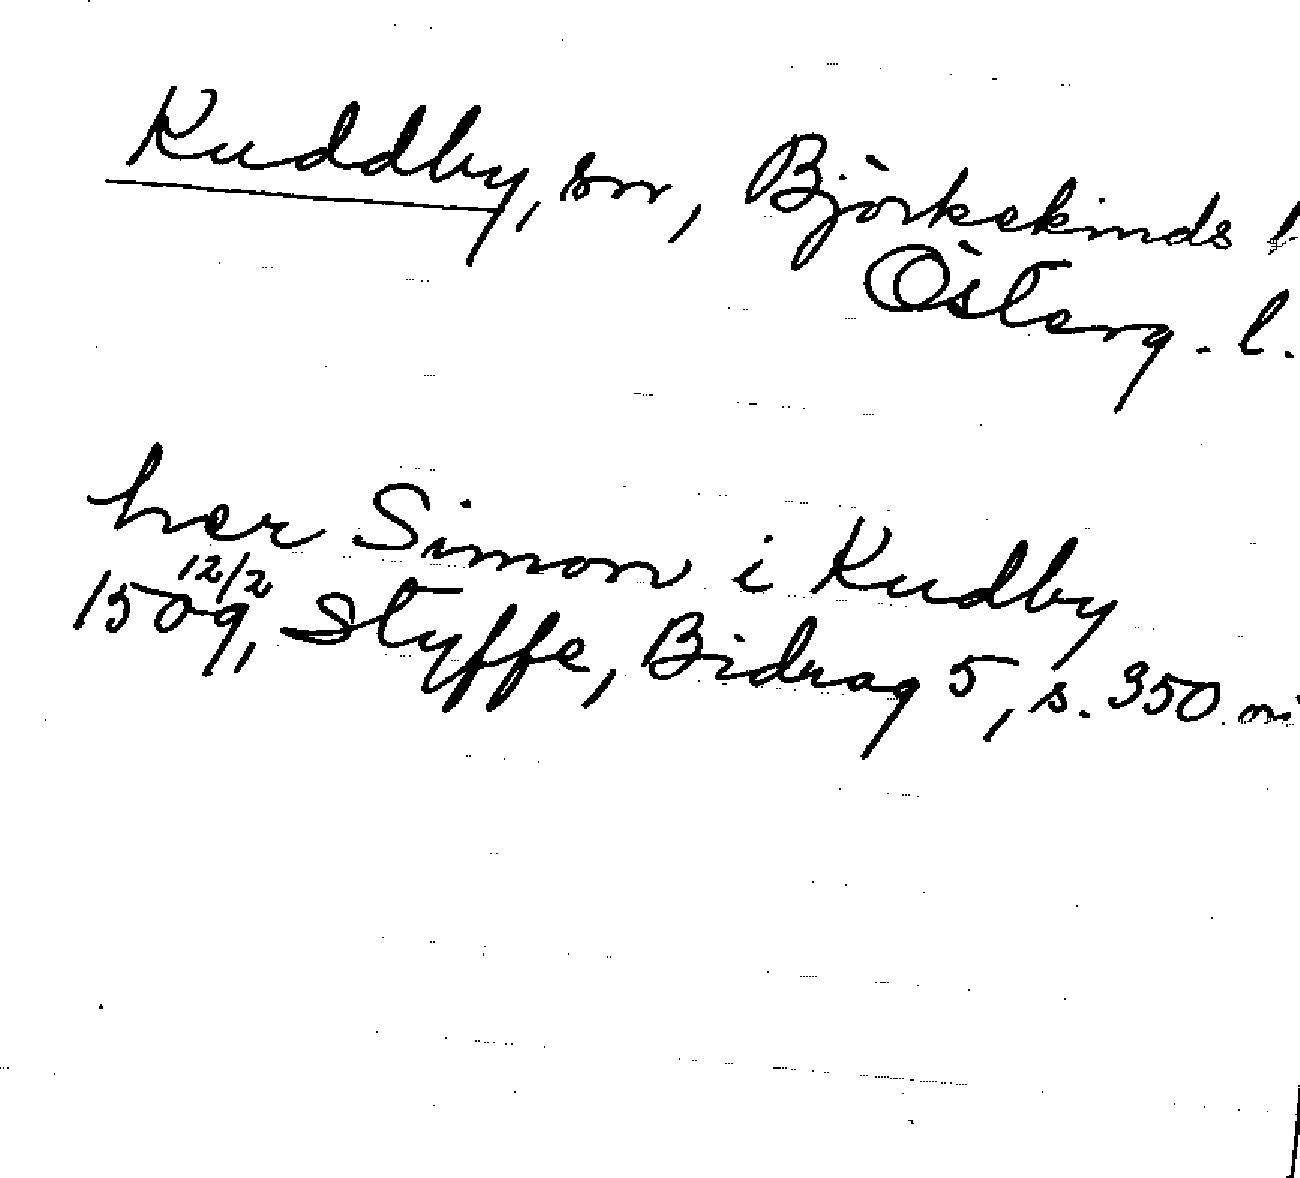 Kuddby, sn, Björkekinds
Österg. l.
her Simon i Kudby
12/2
1509, Styffe, Bidrag 5, s. 350